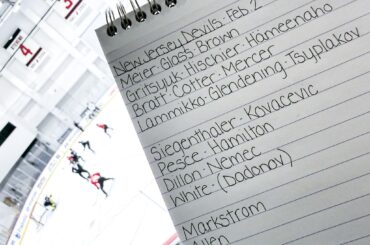 New Jersey Devils: Feb 2
Meier · Glass · Brown
Gritsyuk · Hischier · Hameenaho
Bratt · Cotter · Mercer
Lammikko · Glendening · Tsyplakov
Siegenthaler · Kovacevic
Pesce · Hamilton
Dillon · Nemec
White · (Dadonov)
Markstrom
Allen